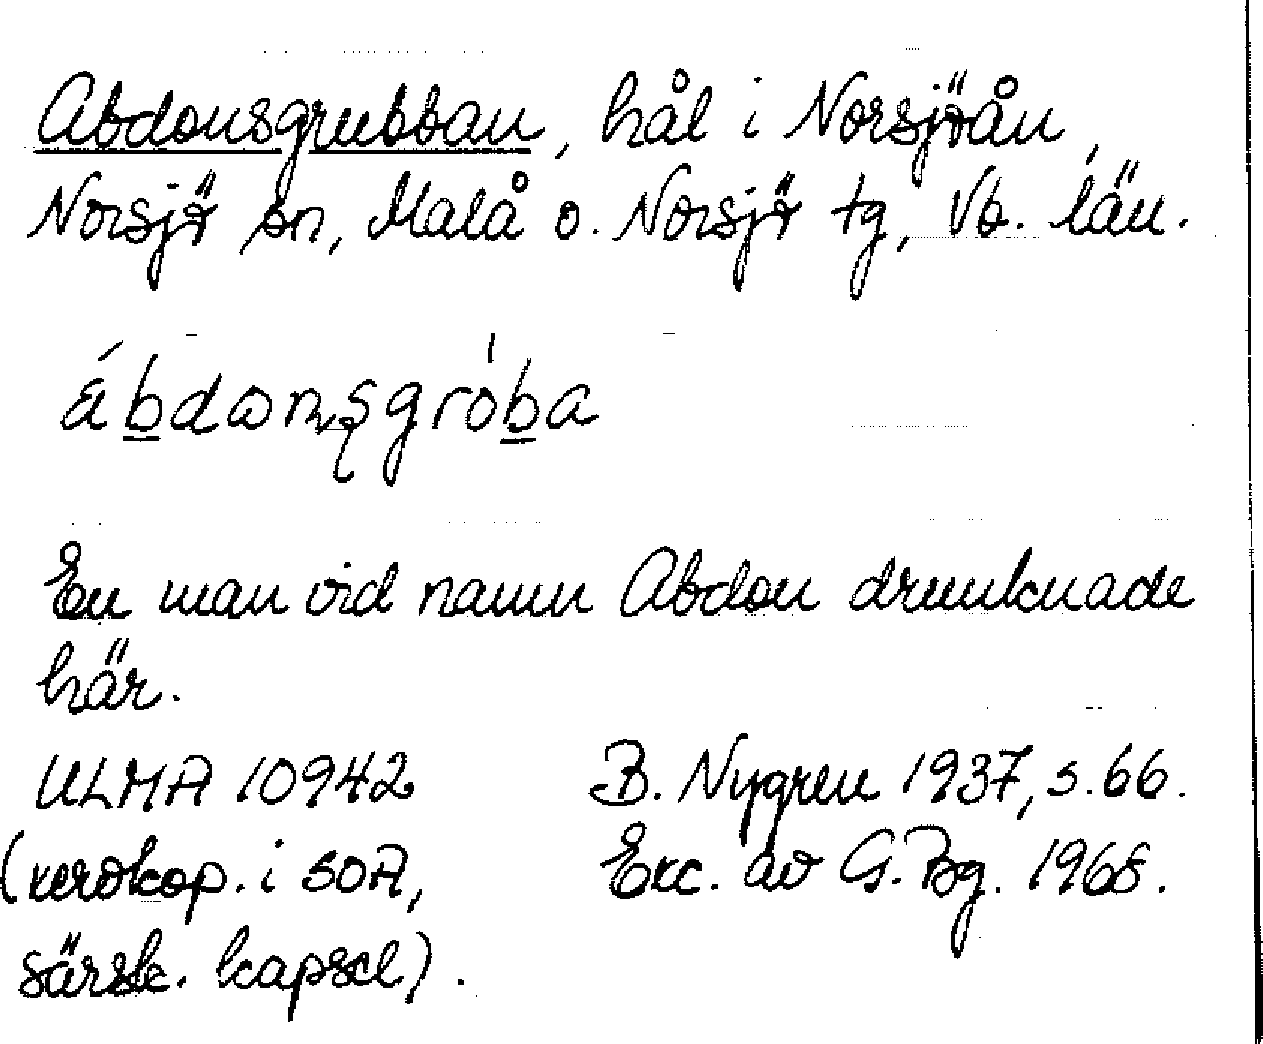 Abdonsgrubban, hål i Norsjöån,
Norsjö sn, Malå o. Norsjö tg, Vb. län.
ábdonsgróba
En man vid namn Abdon drunknade
här.
ULMA 10942 B. Nygren 1937, s. 66.
(xeroxkop. i SOA, Exc. av G. Bg. 1968.
särsk. kapsel).